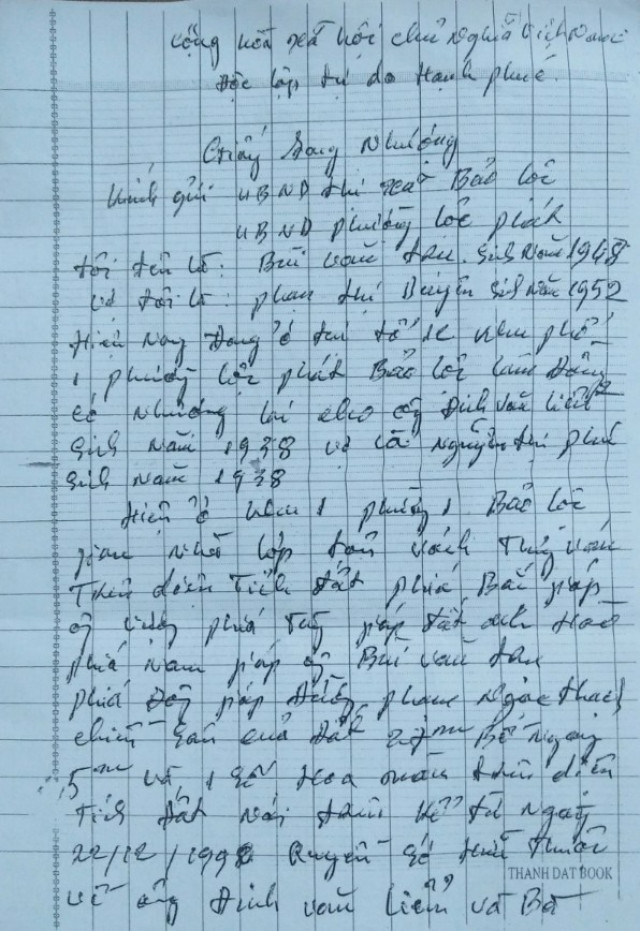 Cộng hòa xã hội chủ nghĩa Việt Nam
Độc lập tự do Hạnh phúc
Giấy Sang Nhượng
Kính gửi UBND thị xã Bảo Lộc
UBND phường Lộc phát
tôi tên là: Bùi văn tân. Sinh Năm 1948
vợ tôi là: phạm thị Duyên Sinh năm 1952
Hiện nay Đang ở tại tổ khu phố
1 phường Lộc phát Bảo Lộc Lâm Đồng
có nhượng lại cho ông Đinh văn liễm
Sinh Năm 1938 vợ là Nguyễn thị phú
Sinh Năm 1938
Hiện ở khu 1 phường 1 Bảo Lộc
gian nhà lợp tôn vách ván
Trên diện Tích đất phía Bắc giáp
ông phía Tây giáp đất anh
phía Nam giáp ông Bùi văn tân
phía Đông giáp Đường phạm Ngọc thạch
chiều Sâu của Đất Bề Ngang
5m và 1 số Hoa màu trên diện
Tích đất Nói trên kể từ ngày
22/12/1998 Quyền Sở thuộc
về ông Đinh văn liễm và Bà
THANH DAT BOOK